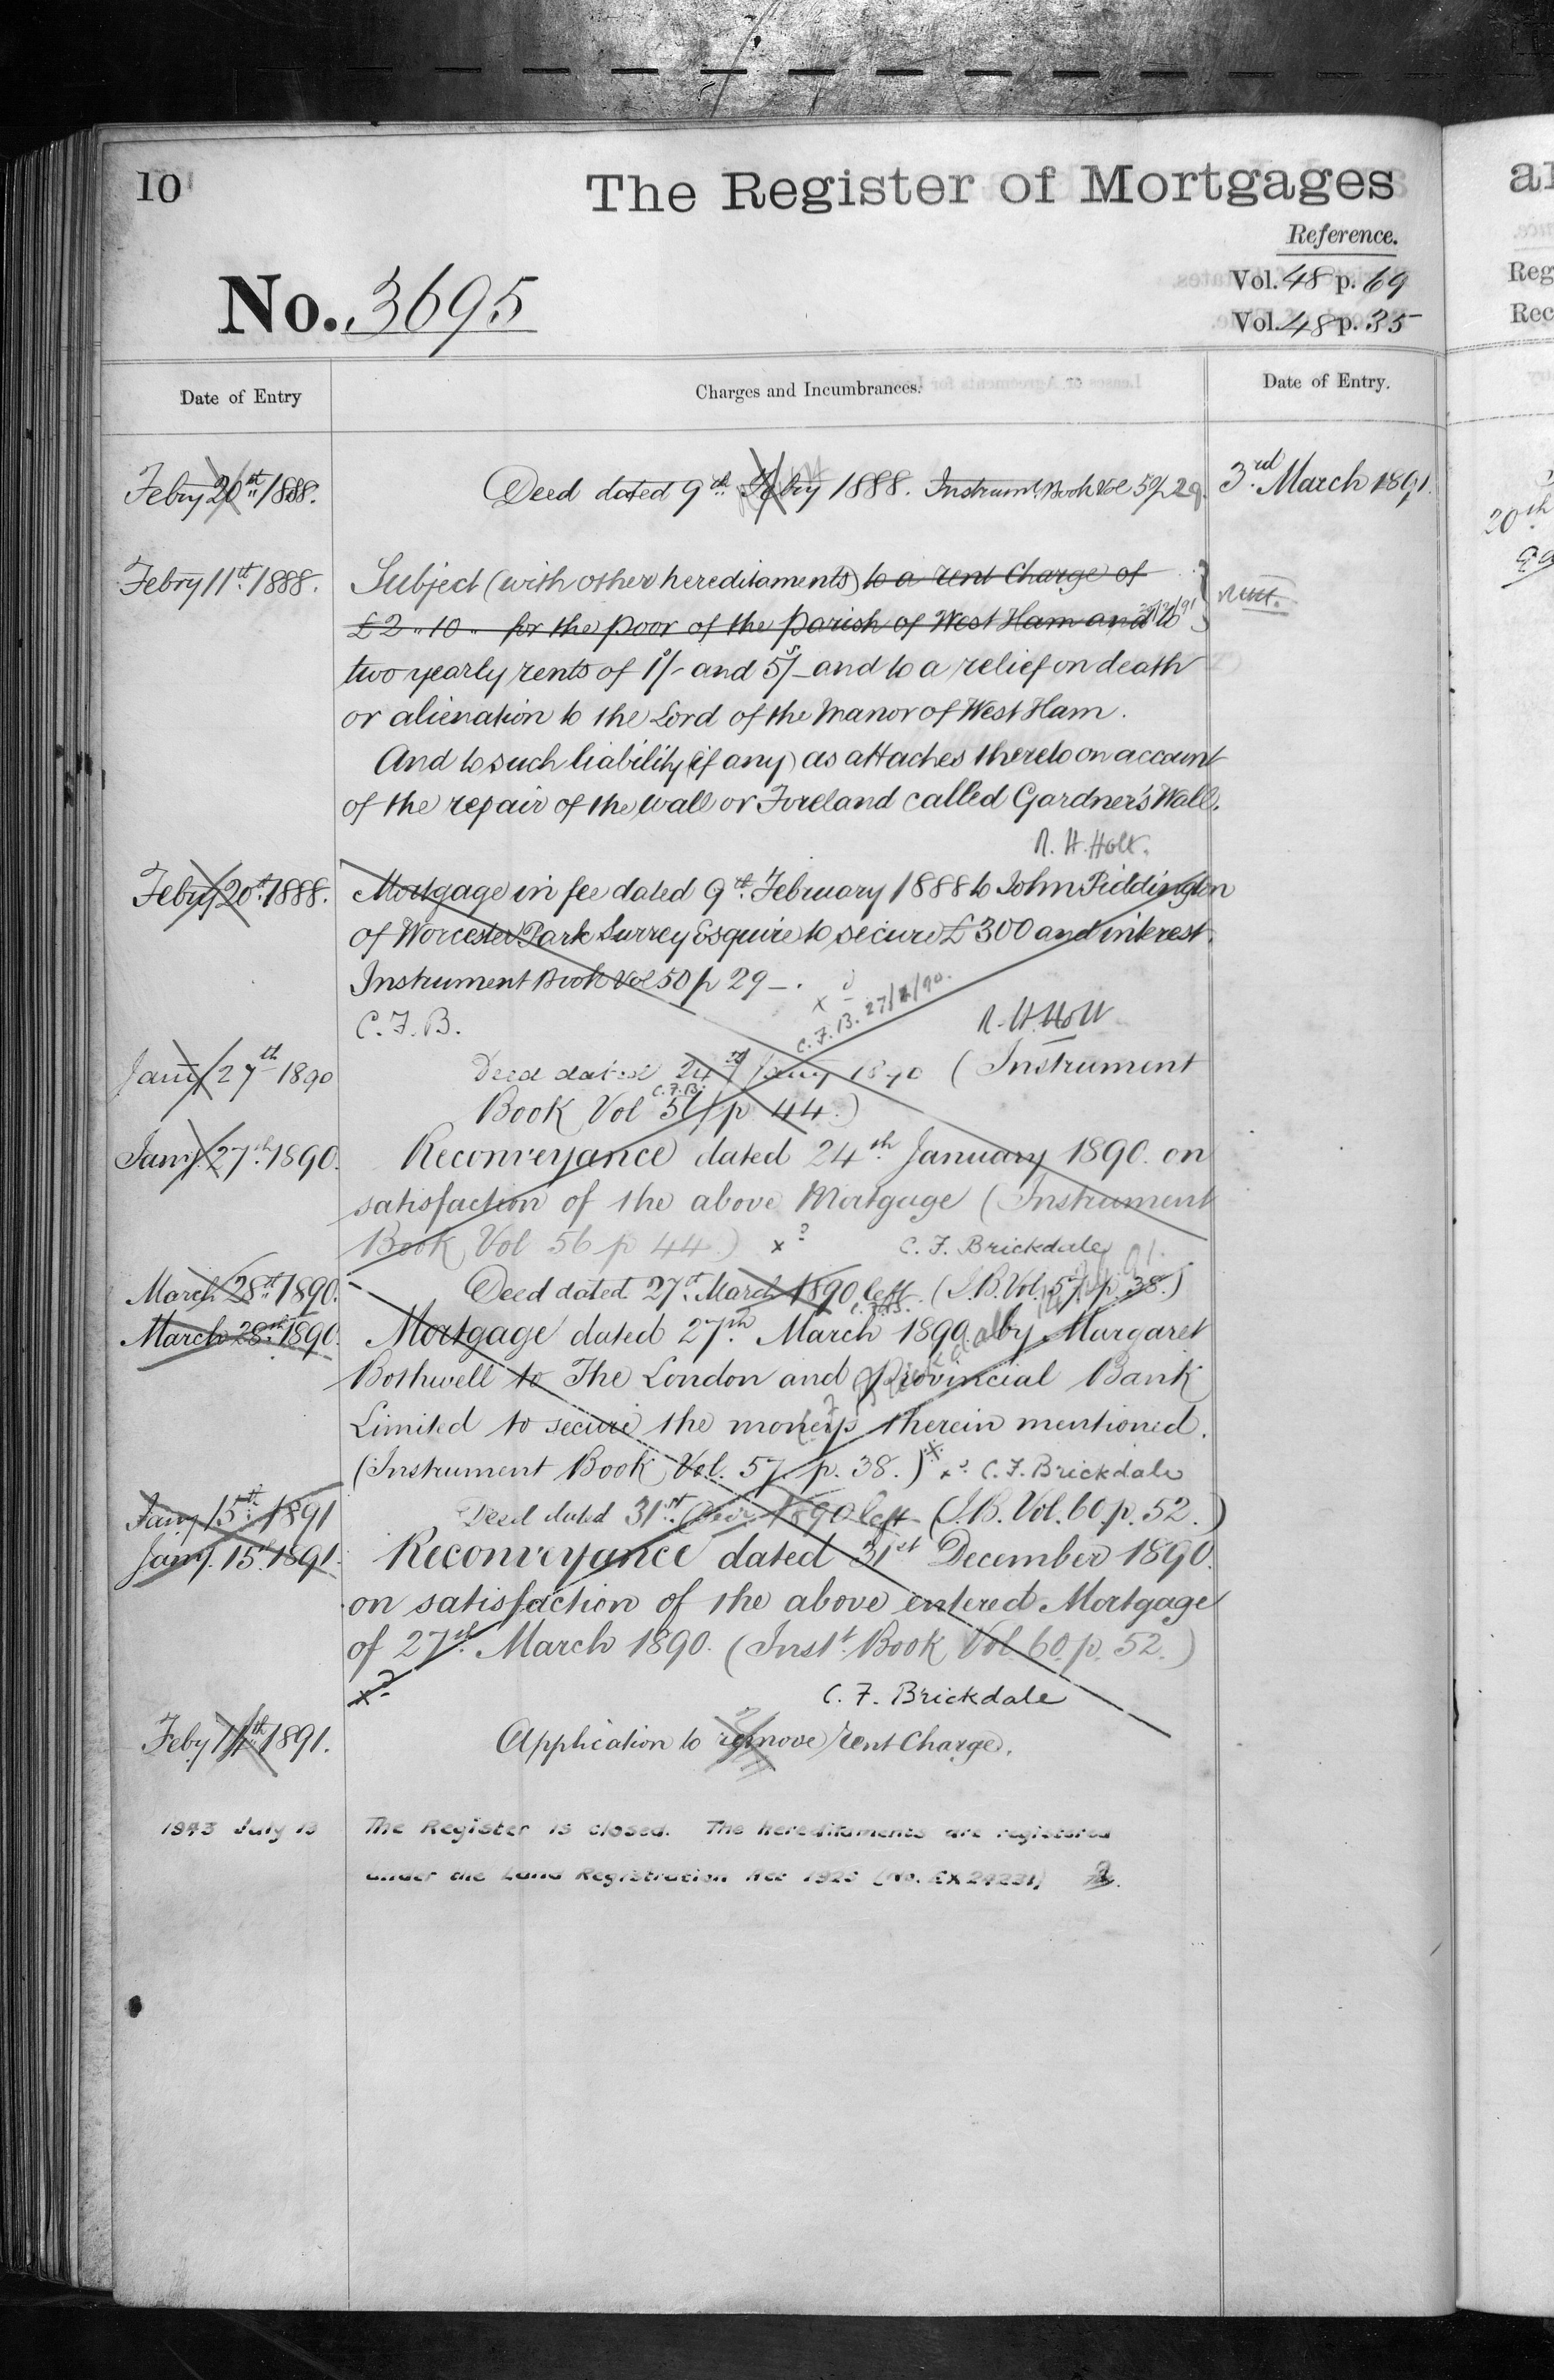 10
The Register of Mortgages
Reference.
No. 3695
Vol. 48 p. 69
Vol. 48 p. 35
Date of Entry
Charges and Incumbrances.
Date of Entry.
Febry 20th 1888.
Deed dated 9th Febry 1888. Instrumt Book Vol 50 p 29.
3rd March 1891.
Febry 11th 1888.
Subject (with other hereditaments) to a rent Charge of
£2 " 10 " for the poor of the parish of West Ham and to
two yearly rents of 1/- and 5/- and to a relief on death
or alienation to the Lord of the Manor of West Ham.
And to such liability (if any) as attaches thereto on account
of the repair of the wall or Foreland called Gardner's Wall.
R. H. Holt.
Febry 20th 1888.
Mortgage in fee dated 9th February 1888 to John Piddington
of Worcester Park Surrey Esquire to secure £300 and interest.
Instrument Book Vol 50 p 29 -.
C. F. B.
C. F. B. 27/1/90.
R. H. Holt
Jany 27th 1890
Deed dated 24th Jany 1890 (Instrument
C.F.B.
Book Vol 56 p 44.)
Jany 27th 1890.
Reconveyance dated 24th January 1890. on
satisfaction of the above Mortgage (Instrument
Book Vol 56 p 44.) x
C. F. Brickdale
March 28th 1890.
Deed dated 27th March 1890 left. (I.B. Vol. 57. p. 38.)
C.F.B.
March 28th 1890.
Mortgage dated 27th March 1890. by Margaret
Bothwell to The London and Provincial Bank
Limited to secure the moneys therein mentioned.
(Instrument Book Vol. 57. p. 38.) x C. F. Brickdale
Jany 15th 1891
Deed dated 31st Decr. 1890 left (I.B. Vol. 60. p. 52.)
Jany. 15th 1891.
Reconveyance dated 31st December 1890.
on satisfaction of the above entered Mortgage
of 27th March 1890. (Inst. Book Vol. 60. p. 52.)
x
C. F. Brickdale
Feby 11th 1891.
Application to remove rent Charge.
1943 July 13
The Register is closed. The hereditaments are registered
under the Land Registration Act 1925 (No. EX24231)
al
Reg
Rec
20th